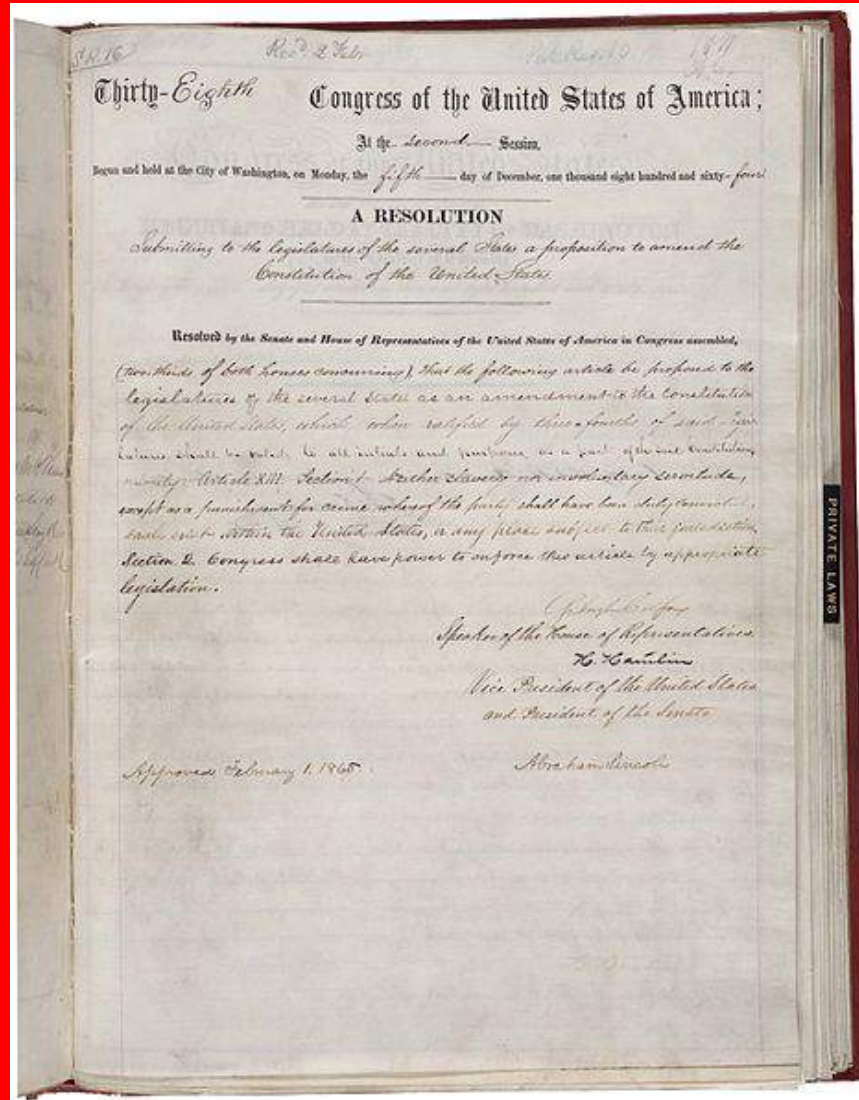 S.R.16 Recd. 2 Feby
Thirty-Eighth Congress of the United States of America;
At the second Session,
Begun and held at the City of Washington, on Monday, the fifth day of December, one thousand eight hundred and sixty-four
A RESOLUTION
Submitting to the legislatures of the several States a proposition to amend the
Constitution of the United States.
Resolved by the Senate and House of Representatives of the United States of America in Congress assembled,
(two-thirds of both houses concurring), that the following article be proposed to the
legislatures of the several States as an amendment to the Constitution
of the United States, which, when ratified by three-fourths of said Legis-
latures shall be valid, to all intents and purposes, as a part of the said Constitution,
namely: Article XIII. Section 1. Neither slavery nor involuntary servitude,
except as a punishment for crime whereof the party shall have been duly convicted,
shall exist within the United States, or any place subject to their jurisdiction.
Section 2. Congress shall have power to enforce this article by appropriate
legislation.
Schuyler Colfax
Speaker of the House of Representatives
H. Hamlin
Vice President of the United States
and President of the Senate
Approved February 1. 1865. Abraham Lincoln
PRIVATE LAWS